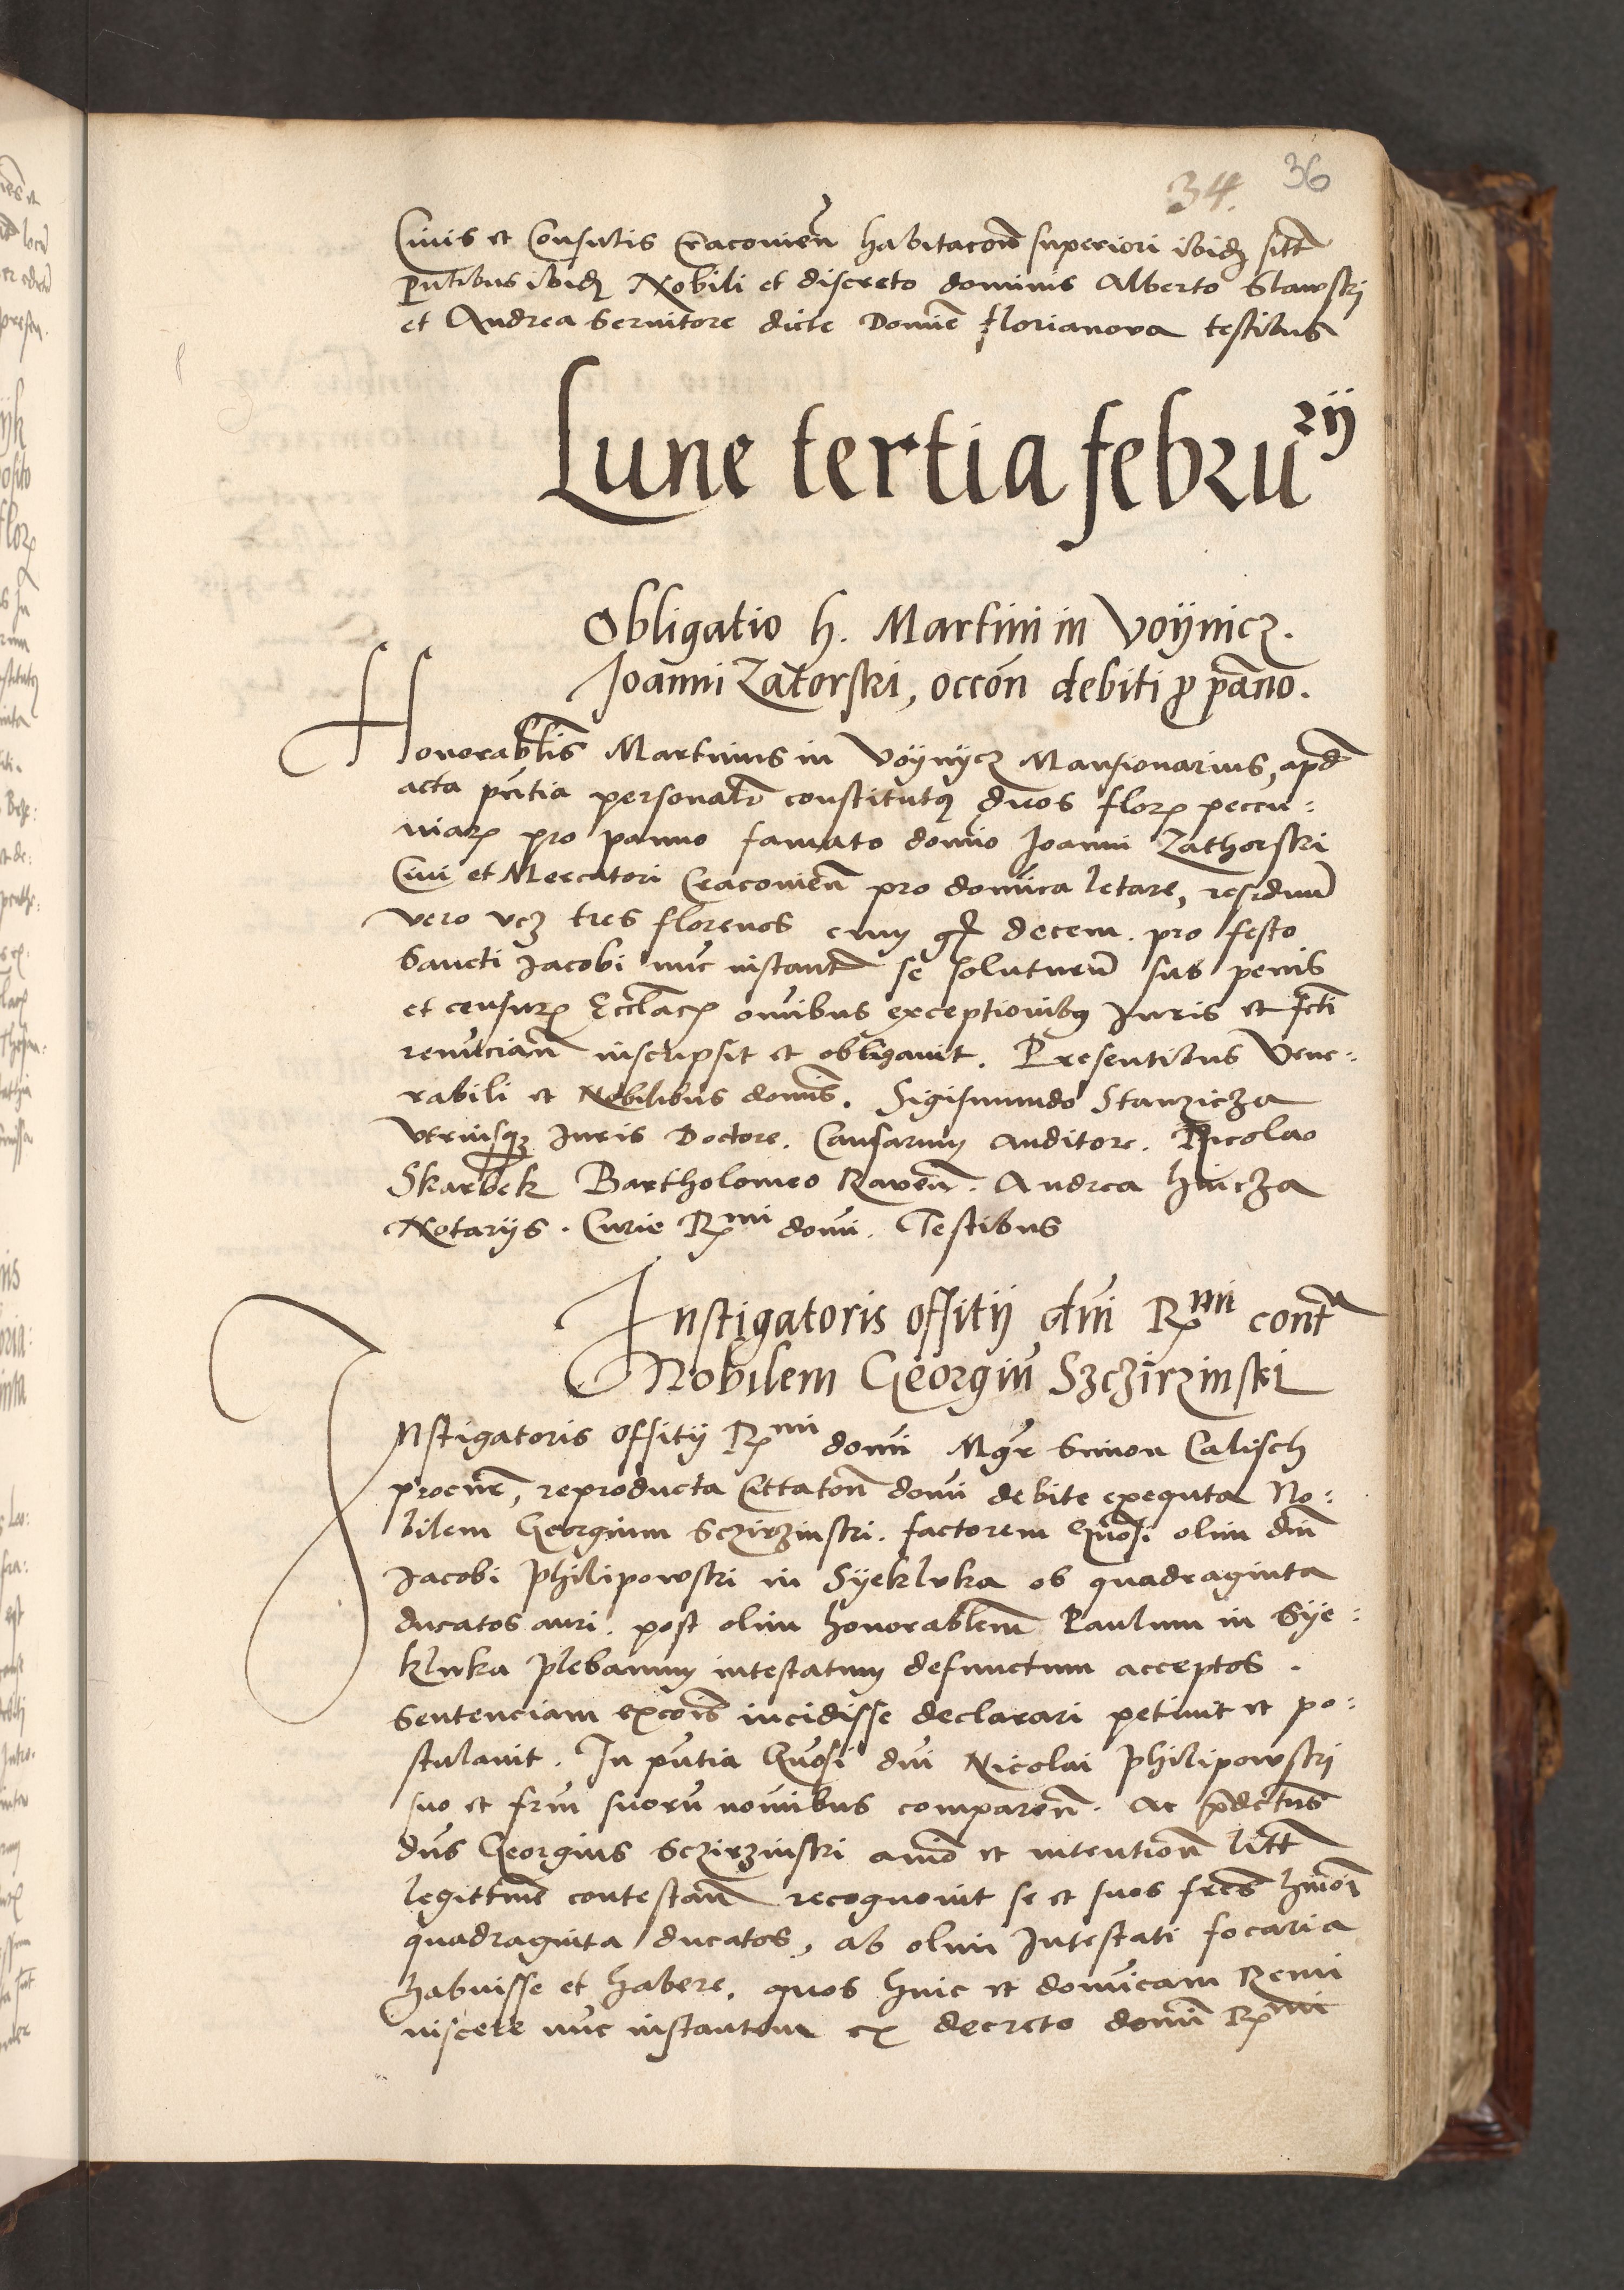 34. 36
Civis et Consulis Cracovien̄ habitacoē superiori ibidē sitt̄
Pn̄tibus ibidē Nobili et discreto dominis Alberto Slawski
et Andrea Servitore dicte Domīe Florianova testibus
Lune tertia febru rij
Obligatio h. Martini in Voijnicz.
Joanni Zatorski, occōn debiti pro pan̄o.
Honorab̄lis Martinus in Voijnÿcz Mansionarius, apd̄
acta pn̄tia personalr̄ constitutus duos flor̄ peccu:
niar̄ pro panno famato domīo Joanni Zathorski
Civi et Mercatori Cracovien̄ pro domīca letare, residuum̄
vero vcz tres florenos cum gr̄ decem. pro festo
Sancti Jacobi nūc instant̄ se soluturum̄ sub penis
et censur̄ Eccl̄acȳ om̄ibus exceptionibus Juris et fcti
renūcian̄ inscripsit et obligavit. Presentibus Vene:
rabili et Nobilibus domīs. Sigismundo Stanzicza
Utriusqz Juris Doctore. Causarum Auditore. Nicolao
Skarbek Bartholomeo Raven̄. Andrea Hincza
Notariis. Curie R mi domī. Testibus
Instigatoris offitij dn̄i R mi cont̄
Nobilem Georgiū Szczirzinski
Instigatoris offitij R mi domī Mgr̄ Simon Calisch
procur̄, reproducta Cittaton̄ domī debite exequta No:
bilem Georgium Sczirzinski. factorem Gn̄osi olim dn̄i
Jacobi Philipowski in Sÿeklvka ob quadraginta
ducatos auri. post olim honorab̄lem Paulum in Sÿe:
klvka plebanum intestatum defunctum acceptos.
Sentenciam excōis incidisse declarari petiuit et po:
stulavit. In pn̄tia Gn̄osi dn̄i Nicolai Philipowski
suo et frm̄ suorū nomībus comparen̄. Ac pr̄dctus
dn̄s Georgius Sczirzinski animō et intention̄ litt̄
legittime contestan̄ recognovit se et suos frēs hm̄oi
quadraginta ducatos, ab olim Intestati focaria
habuisse et habere. quos huic et domīcam Remi
niscere nūc instantem ex decreto domī R mi